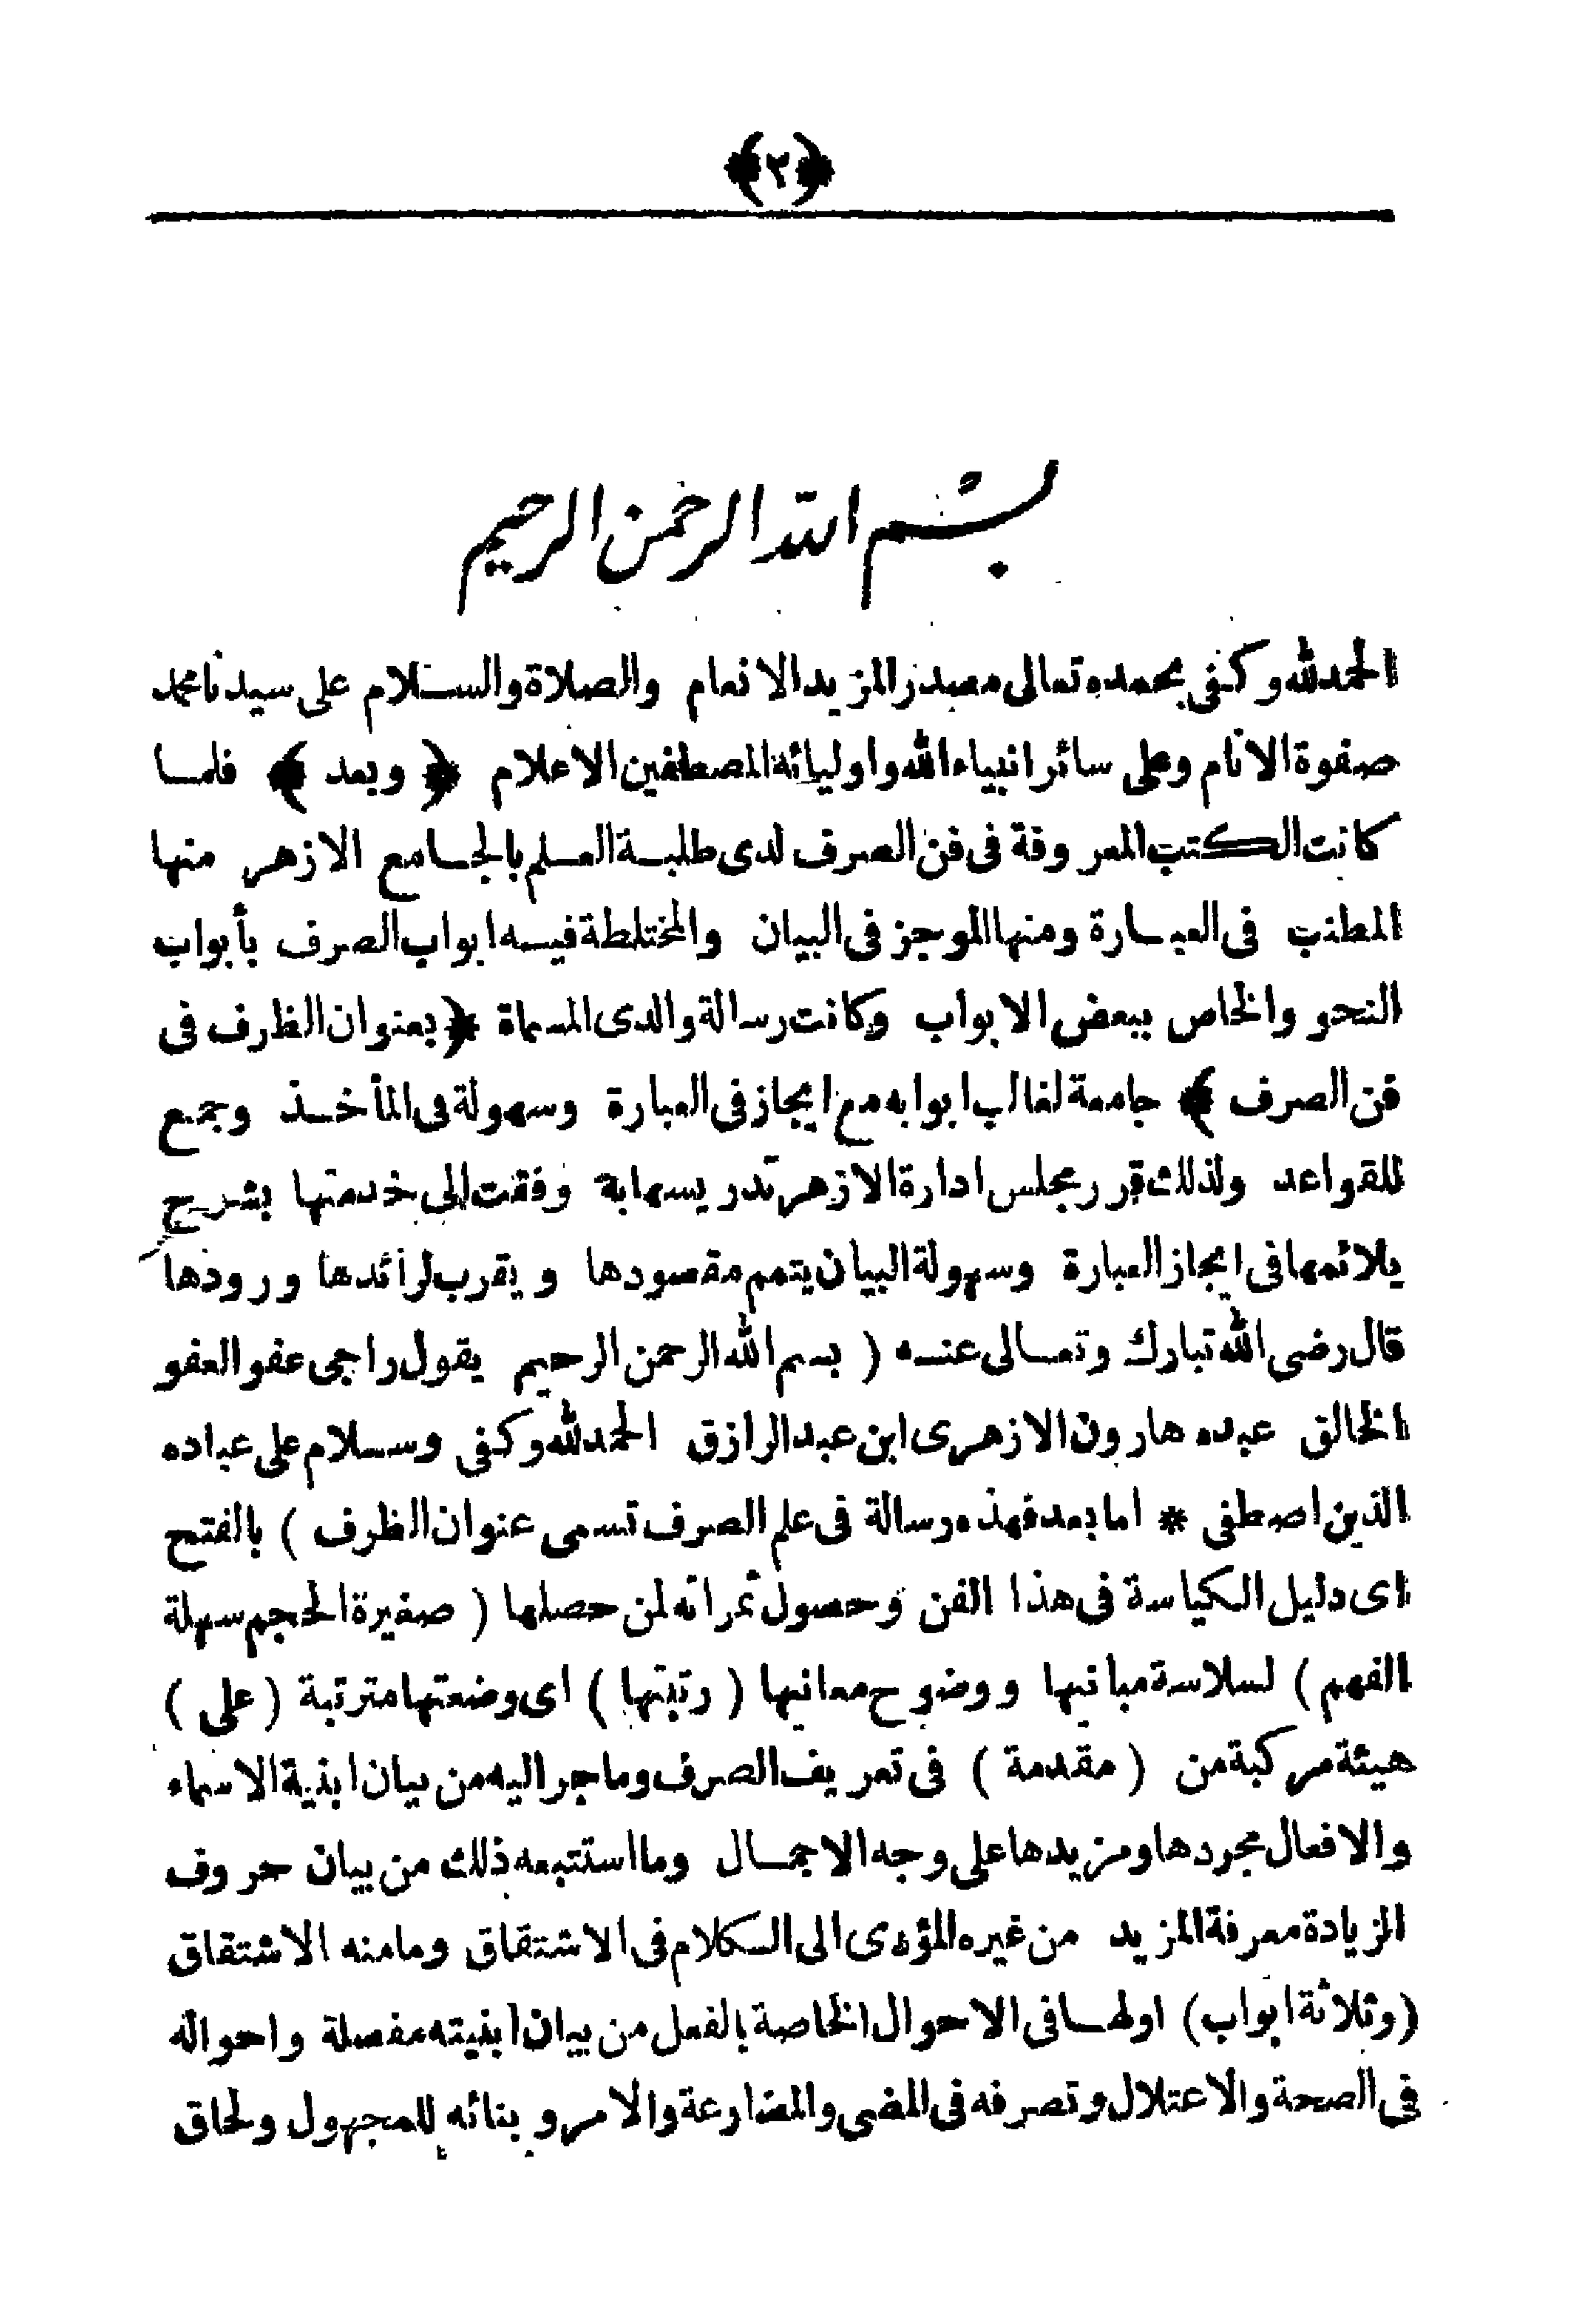 ﴿٢﴾
بسم الله الرحمن الرحيم
الحمد لله وكفى بحمده تعالى مصدر المزيد الانعام والصلاة والسلام على سيدنا محمد
صفوة الانام وعلى سائر انبياء الله واوليائه المصطفين الاعلام ﴿ وبعد ﴾ فلما
كانت الكتب المعروفة فى فن الصرف لدى طلبة العلم بالجامع الازهر منها
المطنب فى العبارة ومنها الموجز فى البيان والمختلطة فيه ابواب الصرف بأبواب
النحو والخاص ببعض الابواب وكانت رسالة والدى المسماة ﴿ بعنوان الظرف فى
فن الصرف ﴾ جامعة لغالب ابوابه مع ايجاز فى العبارة وسهولة فى المأخذ وجمع
للقواعد ولذلك قرر مجلس ادارة الازهر تدريسها به وفقت الى خدمتها بشرح
يلائمها فى ايجاز العبارة وسهولة البيان يتمم مقصودها ويقرب لرائدها ورودها
قال رضى الله تبارك وتعالى عنه ( بسم الله الرحمن الرحيم يقول راجى عفو العفو
الخالق عبده هارون الازهرى ابن عبد الرازق الحمد لله وكفى وسلام على عباده
الذين اصطفى * اما بعد فهذه رسالة فى علم الصرف تسمى عنوان الظرف ) بالفتح
اى دليل الكياسة فى هذا الفن وحصول ثمراته لمن حصلها ( صغيرة الحجم سهلة
الفهم ) لسلاسة مبانيها ووضوح معانيها ( رتبتها ) اى وضعتها مترتبة ( على )
هيئة مركبة من ( مقدمة ) فى تعريف الصرف وما جر اليه من بيان ابنية الاسماء
والافعال مجردها ومزيدها على وجه الاجمال وما استتبعه ذلك من بيان حروف
الزيادة معرفة المزيد من غيره المؤدى الى الكلام فى الاشتقاق وما منه الاشتقاق
(وثلاثة ابواب) اولها فى الاحوال الخاصة بالفعل من بيان ابنيته مفصلة واحواله
فى الصحة والاعتلال وتصرفه فى المضى والمضارعة والامر وبنائه للمجهول ولحاق